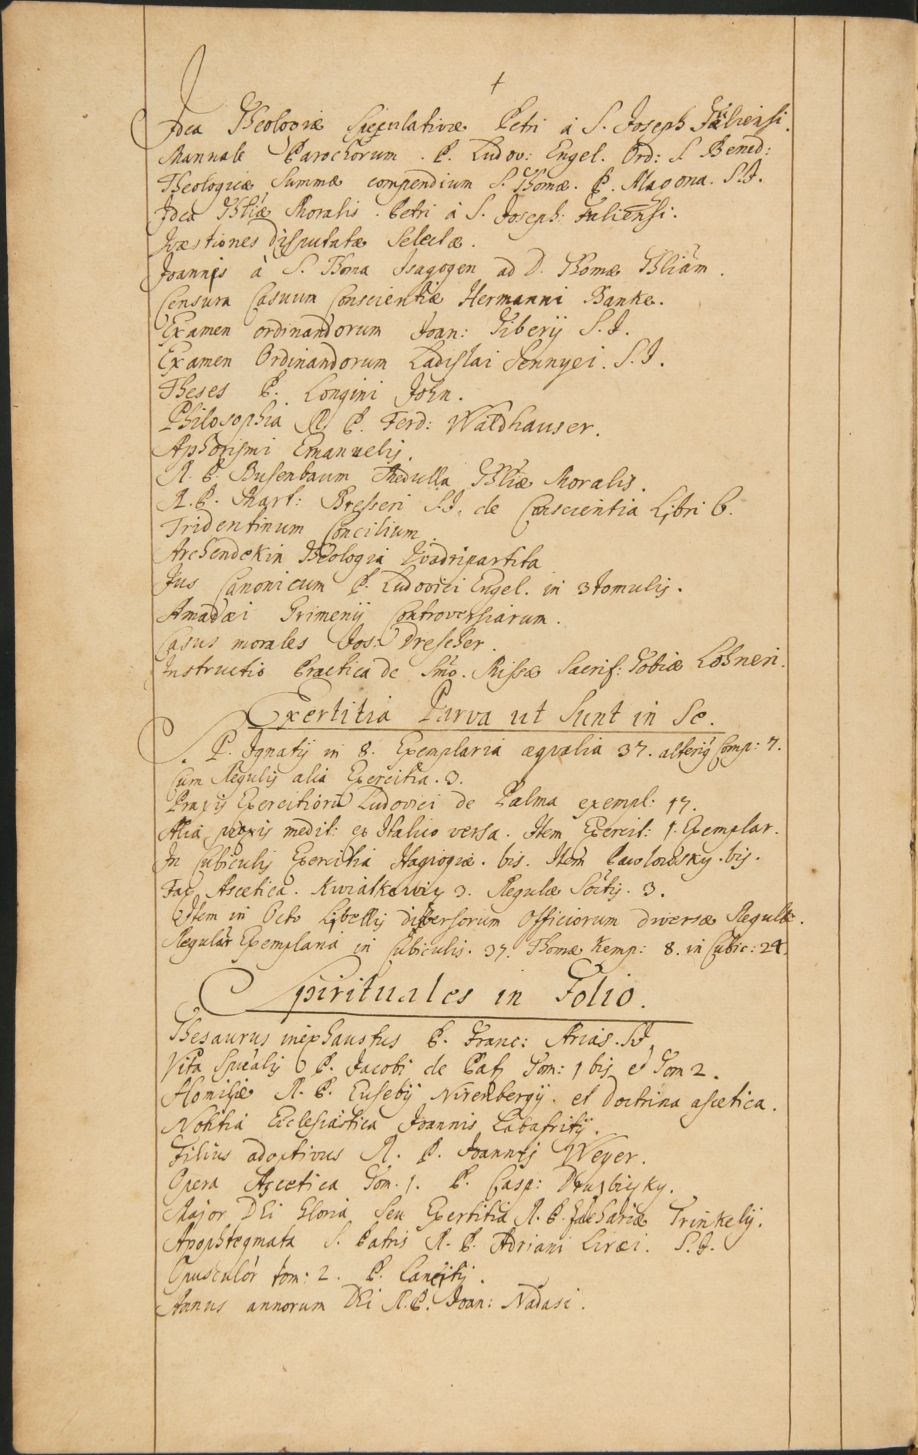 †
Idea Theologiæ Speculativæ Petri à S. Joseph Fuliensi.
Manuale Parochorum. P. Ludov: Engel. Ord: S. Bened:
Theologicæ Summæ compendium S. Thomæ. P. Magona. S.J.
Idea Thliæ Moralis. Petri à S. Joseph: Fuliensi.
Quæstiones disputatæ Selectæ.
Joannis à S. Thoma Isagogen ad D. Thomæ Thliam.
Censura Casuum Conscientiæ Hermanni Banke.
Examen ordinandorum Joan: Giberÿ S.J.
Examen Ordinandorum Ladislai Sennyei. S.J.
Theses P. Longini John.
Philosophia R. P. Ferd: Waldhauser.
Aphorismi Emanuelis.
R. P. Busenbaum Medulla Thliæ Moralis.
R. P. Mart: Bresseri S.J. de Conscientia Libri 6.
Tridentinum Concilium.
Archendekin Theologia Quadripartita
Jus Canonicum P. Ludovici Engel. in 3 tomulis.
Amadæi Grimenÿ Controversiarum.
Casus morales Jos: Drescher.
Instructio Practica de Smo. Missæ Sacrif: Tobiæ Lohneri.
Exertitia Parva ut Sunt in 8o.
S. P. Ignatÿ in 8. Exemplaria æqvalia 37. alteriq Comp: 7.
Cum Regulis alia Exercitia. 3.
Praxis Exercitiorũ Ludovici de Palma exempl: 17.
Alia praxis medit: ex Italico versa. Item Exercit: 1. Exemplar.
In Cubiculis Exercitia Hagiogiæ. bis. Item Pawlowsky. bis.
Fax Ascetica. Kwiatkiewicz 3. Regulæ Soctis. 3.
Item in Octo Libellis diversorum Officiorum diversæ Regulæ.
Regular Exemplaria in Cubiculis. 37. Thomæ Kemp: 8. in Cubic: 24.
Spirituales in Folio.
Thesaurus inexhaustus P. Franc: Arias. S.J.
Vita Spũalis P. Jacobi de Paz Tom: 1 bis et Tom 2.
Homiliæ R. P. Eusebÿ Nirenbergÿ. et Doctrina ascetica.
Notitia Ecclesiastica Joannis Cabafritÿ.
Filius adoptivus R. P. Joannis Weyer.
Opera Ascetica Tom. 1. P. Casp: Drużbicky.
Major DEi Gloria Seu Exertitia R. P. Zachariæ Trinkelÿ.
Apophtegmata S. Patris R. P. Adriani Liræi. S.J.
Opusculor tom: 2. P. Lancitÿ.
Annus annorum DEi R. P. Joan: Nadasi.